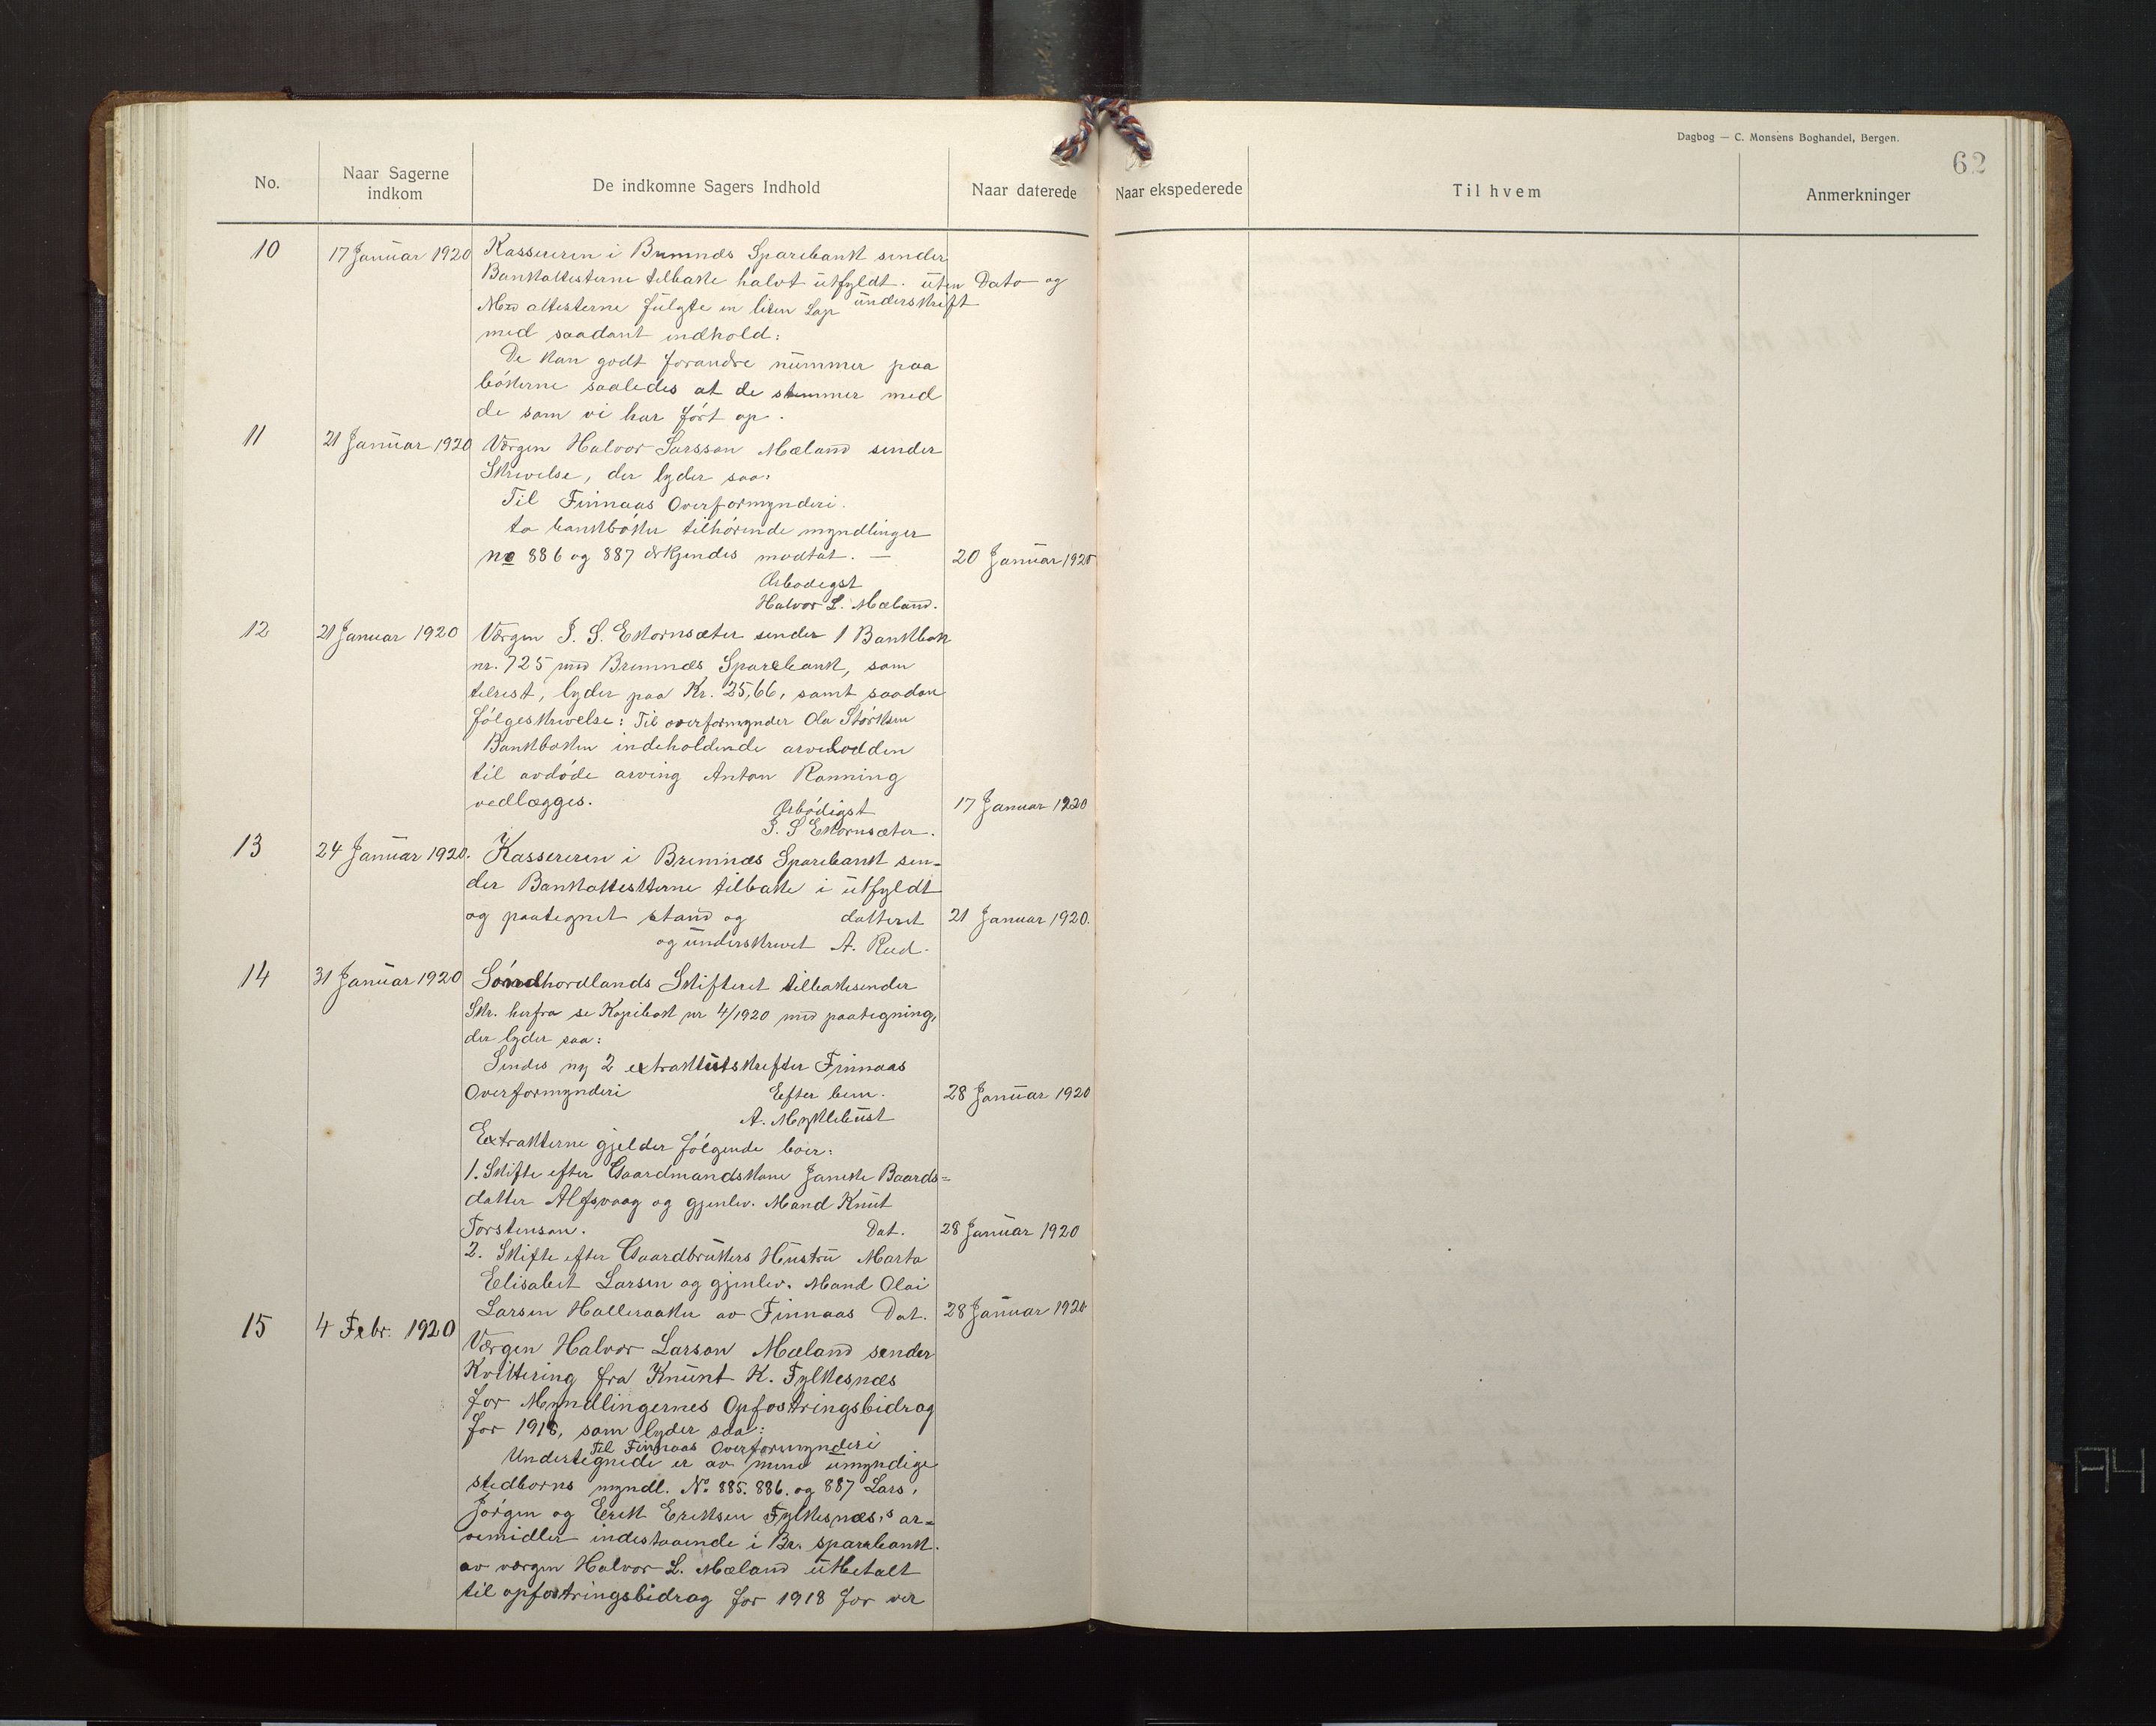 Dagbog — C. Monsens Boghandel, Bergen.
62
No.
Naar Sagerne indkom
De indkomne Sagers Indhold
Naar daterede
Naar ekspederede
Til hvem
Anmerkninger
10 17 Januar 1920 Kassereren i Bremnæs Sparebank sender
Bankattesterne tilbake halvt utfyldt. uten Dato og
Med attesterne fulgte en liten Lap underskrift
med saadant indhold:
De kan godt forandre nummer paa
bøkerne saaledes at de stemmer med
de som vi har ført op.
11 21 Januar 1920 Værgen Halvor Larsson Mæland sender
Skrivelse, der lyder saa:
Til Finnaas Overformynderi.
to bankbøker tilhørende myndlinger
no 886 og 887 erkjendes modtat. — 20 Januar 1920
Ærbødigst
Halvor L. Mæland.
12 21 Januar 1920 Værgen J. S. Ekornsæter sender 1 Bankbok
nr. 725 med Bremnæs Sparebank, som
tilrest, lyder paa Kr. 25,66, samt saadan
følgeskrivelse: Til overformynder Ola Størksen
Bankboken indeholdende arvelodden
til avdøde arving Anton Rønning
vedlægges. 17 Januar 1920
Ærbødigst
J. S Ekornsæter.
13 24 Januar 1920. Kassereren i Bremnæs Sparebank sen=
der Bankattesterne tilbake i utfyldt
og paategnet stand og datteret 21 Januar 1920.
og underskrevet A. Rud.
14 31 Januar 1920 Søndhordlands Skifteret tilbakesender
Skr. herfra se Kopibok nr 4/1920 med paategning,
der lyder saa:
Sendes ny 2 extraktutskrifter Finnaas
Overformynderi Efter bem. 28 Januar 1920
A. Myklebust
Extrakterne gjelder følgende boer:
1. Skifte efter Gaardmandskone Janeke Baards=
datter Alfsvaag og gjenlev. Mand Knut
Torstensen. Dat. 28 Januar 1920
2. Skifte efter Gaardbrukers Hustru Marta
Elisabet Larsen og gjenlev. Mand Olai
Larsen Halleraaker av Finnaas Dat. 28 Januar 1920
15 4 Febr. 1920
Værgen Halvor Larson Mæland sender
Kvittering fra Knunt K. Fylkesnæs
for Myndlingernes Opfostringsbidrag
for 1918, som lyder saa:
Til Finnaas Overformynderi
Undertegnede er av mine umyndige
stedborns myndl. No 885. 886. og 887 Lars,
Jørgen og Erik Eriksen Fylkesnæs,s ar=
vemidler indestaaende i Br. sparebank.
av værgen Halvor L. Mæland utbetalt
til opfostringsbidrag for 1918 for ver